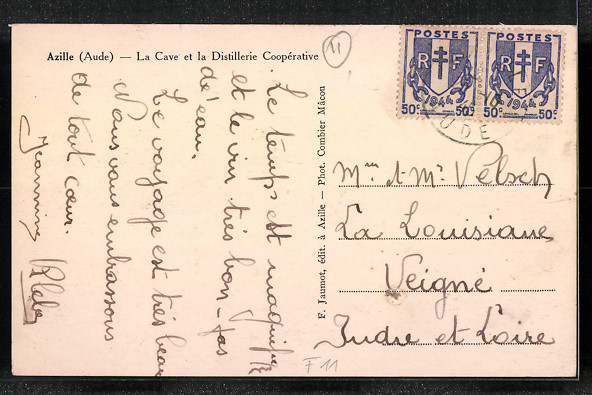 Azille (Aude) — La Cave et la Distillerie Coopérative
11
Le temps est magnifique
et le vin très bon - pas
d'eau.
Le voyage est très beau
Nous vous embrassons
de tout cœur.
Jeannine
F. Jaumot, édit. à Azille — Phot. Combier Mâcon
POSTES
RF
1944
50c 50c
POSTES
RF
1944
50c 50c
AUDE
Mme & Mr Velsch
La Louisiane
Veigné
Indre et Loire
F11